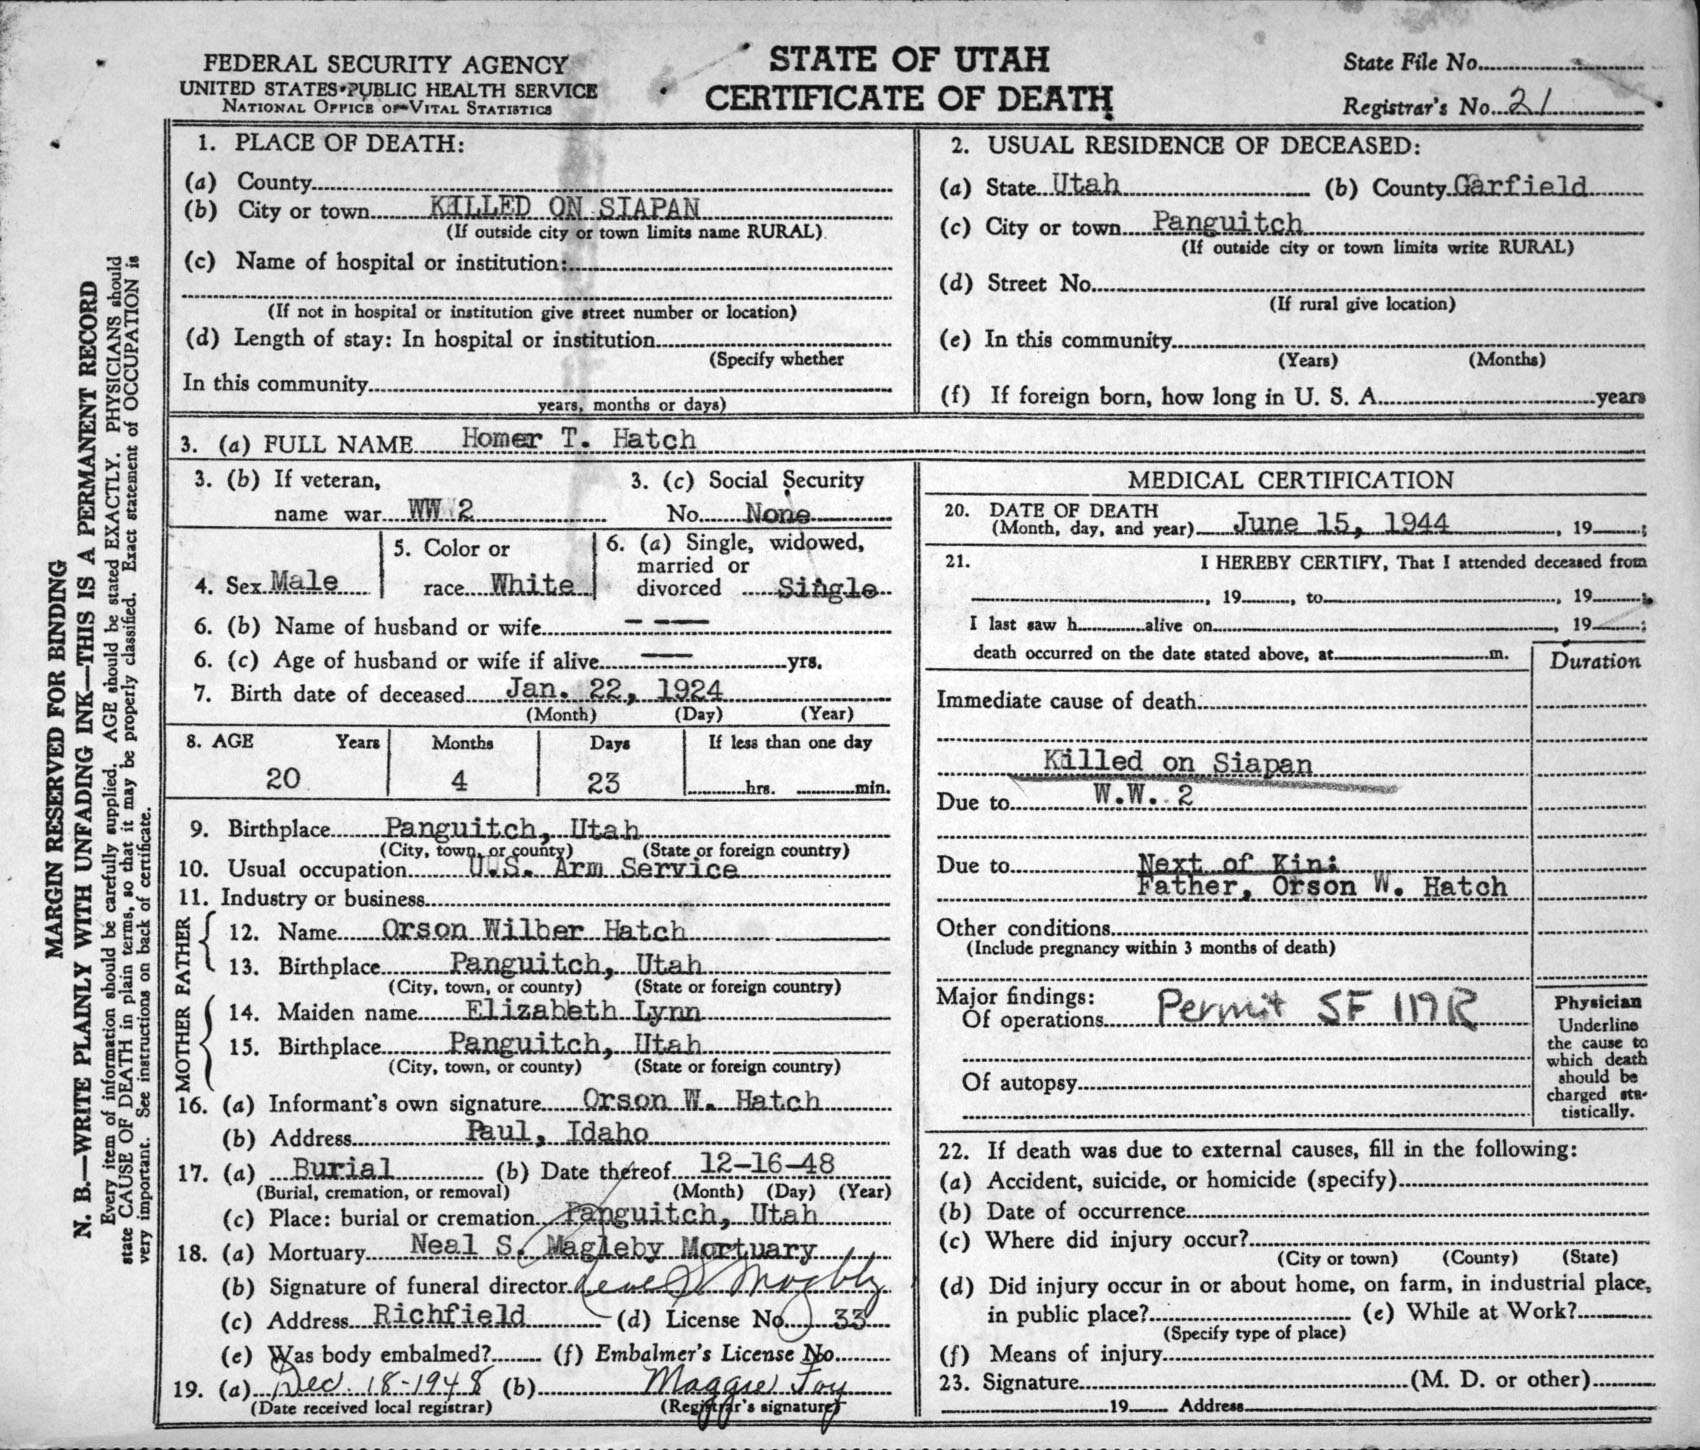 FEDERAL SECURITY AGENCY
UNITED STATES PUBLIC HEALTH SERVICE
NATIONAL OFFICE OF VITAL STATISTICS
STATE OF UTAH
CERTIFICATE OF DEATH
State File No.
Registrar's No. 21
MARGIN RESERVED FOR BINDING
N. B.—WRITE PLAINLY WITH UNFADING INK—THIS IS A PERMANENT RECORD
Every item of information should be carefully supplied. AGE should be stated EXACTLY. PHYSICIANS should
state CAUSE OF DEATH in plain terms, so that it may be properly classified. Exact statement of OCCUPATION is
very important. See instructions on back of certificate.
1. PLACE OF DEATH:
(a) County
(b) City or town KILLED ON SIAPAN
(If outside city or town limits name RURAL)
(c) Name of hospital or institution:
(If not in hospital or institution give street number or location)
(d) Length of stay: In hospital or institution
(Specify whether
In this community
years, months or days)
2. USUAL RESIDENCE OF DECEASED:
(a) State Utah (b) County Garfield
(c) City or town Panguitch
(If outside city or town limits write RURAL)
(d) Street No.
(If rural give location)
(e) In this community
(Years) (Months)
(f) If foreign born, how long in U. S. A. years
3. (a) FULL NAME Homer T. Hatch
3. (b) If veteran,
name war WW 2
3. (c) Social Security
No. None
4. Sex Male
5. Color or
race White
6. (a) Single, widowed,
married or
divorced Single
6. (b) Name of husband or wife — —
6. (c) Age of husband or wife if alive — yrs.
7. Birth date of deceased Jan. 22, 1924
(Month) (Day) (Year)
8. AGE Years Months Days If less than one day
20 4 23 hrs. min.
9. Birthplace Panguitch, Utah
(City, town, or county) (State or foreign country)
10. Usual occupation U.S. Arm Service
11. Industry or business
FATHER
12. Name Orson Wilber Hatch
13. Birthplace Panguitch, Utah
(City, town, or county) (State or foreign country)
MOTHER
14. Maiden name Elizabeth Lynn
15. Birthplace Panguitch, Utah
(City, town, or county) (State or foreign country)
16. (a) Informant's own signature Orson W. Hatch
(b) Address Paul, Idaho
17. (a) Burial (b) Date thereof 12-16-48
(Burial, cremation, or removal) (Month) (Day) (Year)
(c) Place: burial or cremation Panguitch, Utah
18. (a) Mortuary Neal S. Magleby Mortuary
(b) Signature of funeral director Magleby
(c) Address Richfield (d) License No. 33
(e) Was body embalmed? (f) Embalmer's License No.
19. (a) Dec. 18-1948 (b) Maggie Foy
(Date received local registrar) (Registrar's signature)
MEDICAL CERTIFICATION
20. DATE OF DEATH
(Month, day, and year) June 15, 1944, 19 ;
21. I HEREBY CERTIFY, That I attended deceased from
, 19 , to , 19 ;
I last saw h alive on , 19 ;
death occurred on the date stated above, at m.
Duration
Immediate cause of death
Killed on Siapan
Due to W.W. 2
Due to Next of Kin:
Father, Orson W. Hatch
Other conditions
(Include pregnancy within 3 months of death)
Major findings:
Of operations Permit SF 119R
Of autopsy
Physician
Underline
the cause to
which death
should be
charged sta-
tistically.
22. If death was due to external causes, fill in the following:
(a) Accident, suicide, or homicide (specify)
(b) Date of occurrence
(c) Where did injury occur?
(City or town) (County) (State)
(d) Did injury occur in or about home, on farm, in industrial place,
in public place? (e) While at Work?
(Specify type of place)
(f) Means of injury
23. Signature (M. D. or other)
19 Address